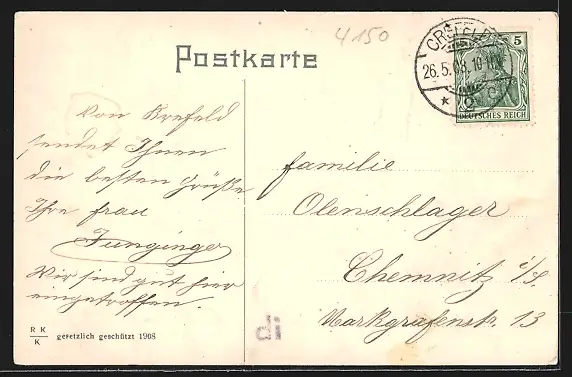 4150
Postkarte
CREFELD
26.5.08.10-11V.
* 2 c
5
DEUTSCHES REICH
Von Krefeld
sendet Ihnen
die besten Grüße
Ihre frau
Junginger
Wir sind gut hier
eingetroffen.
familie
Olenschlager
Chemnitz i/S.
Markgrafenstr. 13
R K
K
gesetzlich geschützt 1908